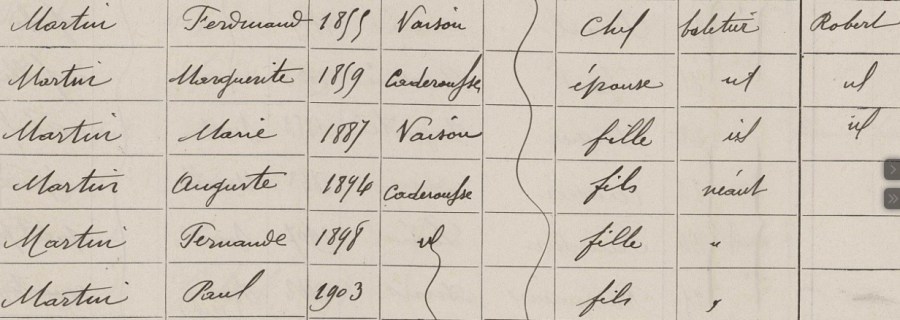 Martin Ferdinand 1855 Vaison Chef Robert
Martin Marguerite 1859 Caderousse épouse id id
Martin Marie 1887 Vaison fille id id
Martin Auguste 1894 Caderousse fils néant
Martin Fernande 1898 id fille "
Martin Paul 1903 fils "